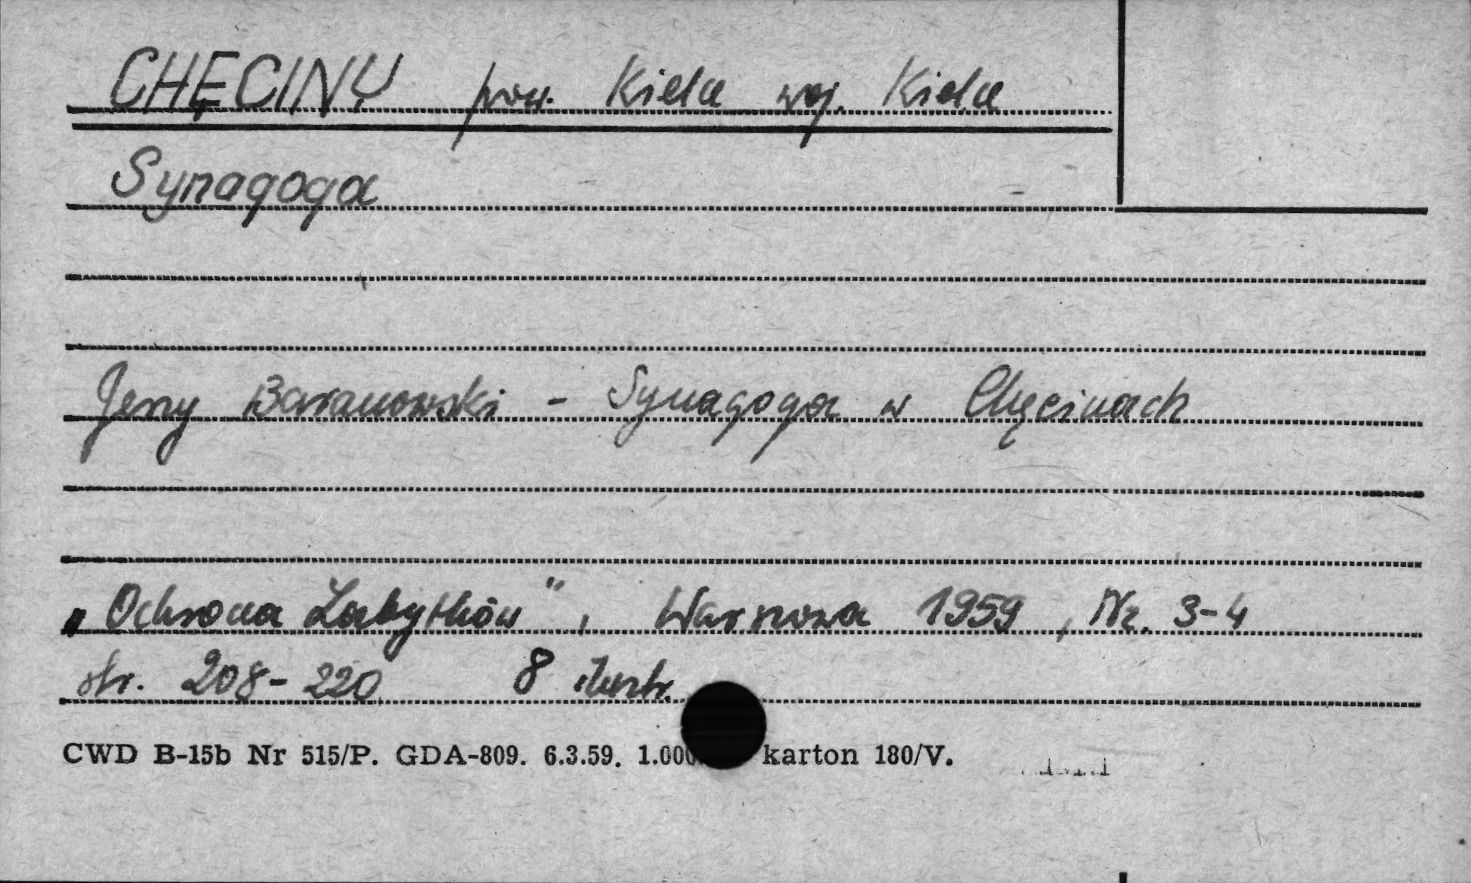 CHĘCINY pow. Kielce woj. Kielce
Synagoga
Jerzy Baranowski - Synagoga w Chęcinach
„Ochrona Zabytków", Warszawa 1959, Nr. 3-4
str. 208-220 8 ilustr.
CWD B-15b Nr 515/P. GDA-809. 6.3.59. 1.000 karton 180/V.